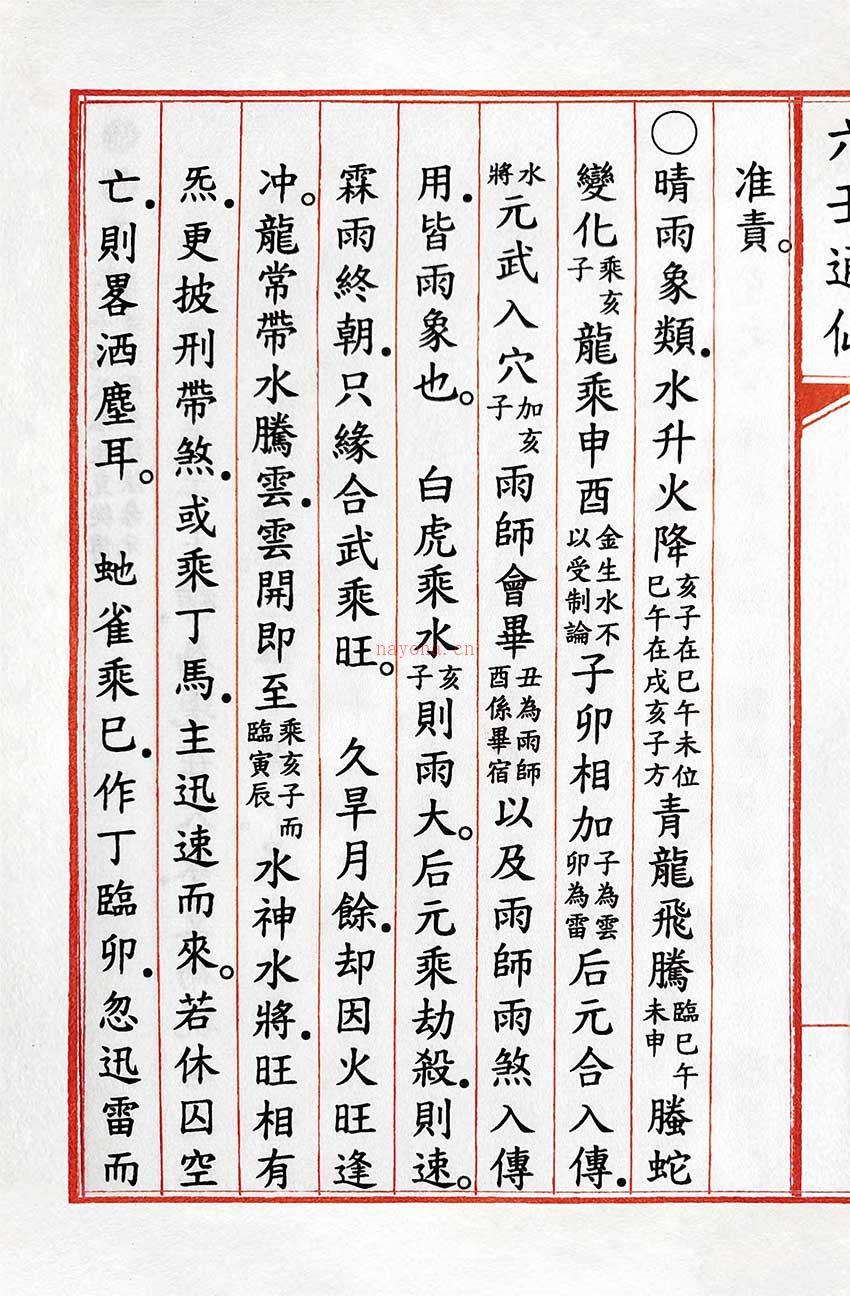 六壬通仙
准責。
〇晴雨象類．水升火降亥子在巳午未位巳午在戌亥子方青龍飛騰臨巳午未申螣蛇
變化乘亥子龍乘申酉金生水不以受制論子卯相加子為雲卯為雷后元合入傳．
水將元武入穴加亥子雨師會畢丑為雨師酉係畢宿以及雨師雨煞入傳
用．皆雨象也。　白虎乘水亥子則雨大。后元乘劫殺．則速。
霖雨終朝．只緣合武乘旺。　久旱月餘．却因火旺逢
冲。龍常帶水騰雲．雲開即至乘亥子而臨寅辰水神水將．旺相有
炁．更披刑帶煞．或乘丁馬．主迅速而來。若休囚空
亡．則畧洒塵耳。　虵雀乘巳．作丁臨卯．忽迅雷而
nayona.cn